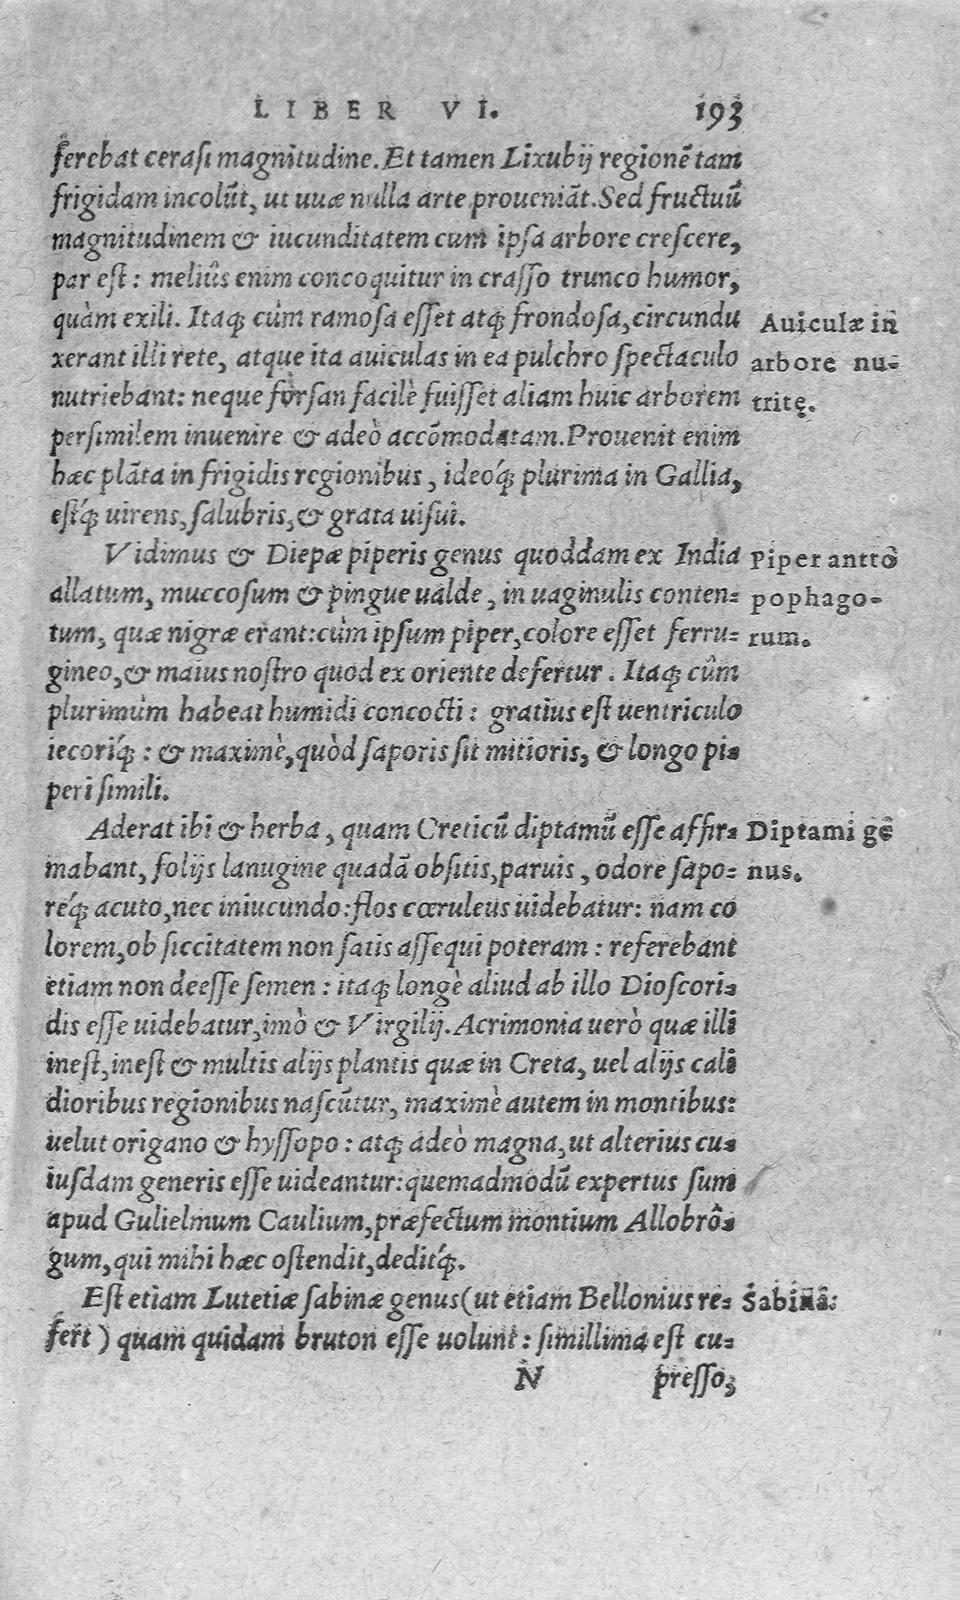 LIBER VI. 193
ferebat cerasi magnitudine. Et tamen Lixubij regionē tam
frigidam incolūt, ut uuæ nulla arte proueniāt. Sed fructuū
magnitudinem & iucunditatem cum ipsa arbore crescere,
par est: meliûs enim concoquitur in crasso trunco humor,
quàm exili. Itaq; cùm ramosa esset atq; frondosa, circundu
xerant illi rete, atque ita auiculas in ea pulchro spectaculo
nutriebant: neque forsan facilè fuisset aliam huic arborem
persimilem inuenire & adeò accōmodatam. Prouenit enim
hæc plāta in frigidis regionibus, ideóq; plurima in Gallia,
estq́; uirens, salubris, & grata uisui.
Auiculæ in
arbore nu-
tritę.
Vidimus & Diepæ piperis genus quoddam ex India
allatum, muccosum & pingue ualde, in uaginulis conten-
tum, quæ nigræ erant: cùm ipsum piper, colore esset ferru-
gineo, & maius nostro quod ex oriente defertur. Itaq; cûm
plurimùm habeat humidi concocti: gratius est uentriculo
iecoriq́;: & maximè, quòd saporis sit mitioris, & longo pi-
peri simili.
Piper antrō
pophago-
rum.
Aderat ibi & herba, quam Creticū diptamū esse affir-
mabant, folijs lanugine quadā obsitis, paruis, odore sapo-
réq; acuto, nec iniucundo: flos cœruleus uidebatur: nam co
lorem, ob siccitatem non satis assequi poteram: referebant
etiam non deesse semen: itaq; longè aliud ab illo Dioscori-
dis esse uidebatur, imò & Virgilij. Acrimonia uerò quæ illi
inest, inest & multis alijs plantis quæ in Creta, uel alijs cali
dioribus regionibus nascūtur, maximè autem in montibus:
uelut origano & hyssopo: atq; adeò magna, ut alterius cu-
iusdam generis esse uideantur: quemadmodū expertus sum
apud Gulielmum Caulium, præfectum montium Allobrô-
gum, qui mihi hæc ostendit, deditq́;.
Diptami gē
nus.
Est etiam Lutetiæ sabinæ genus (ut etiam Bellonius re-
fert) quam quidam bruton esse uolunt: simillima est cu-
Sabina.
N presso,